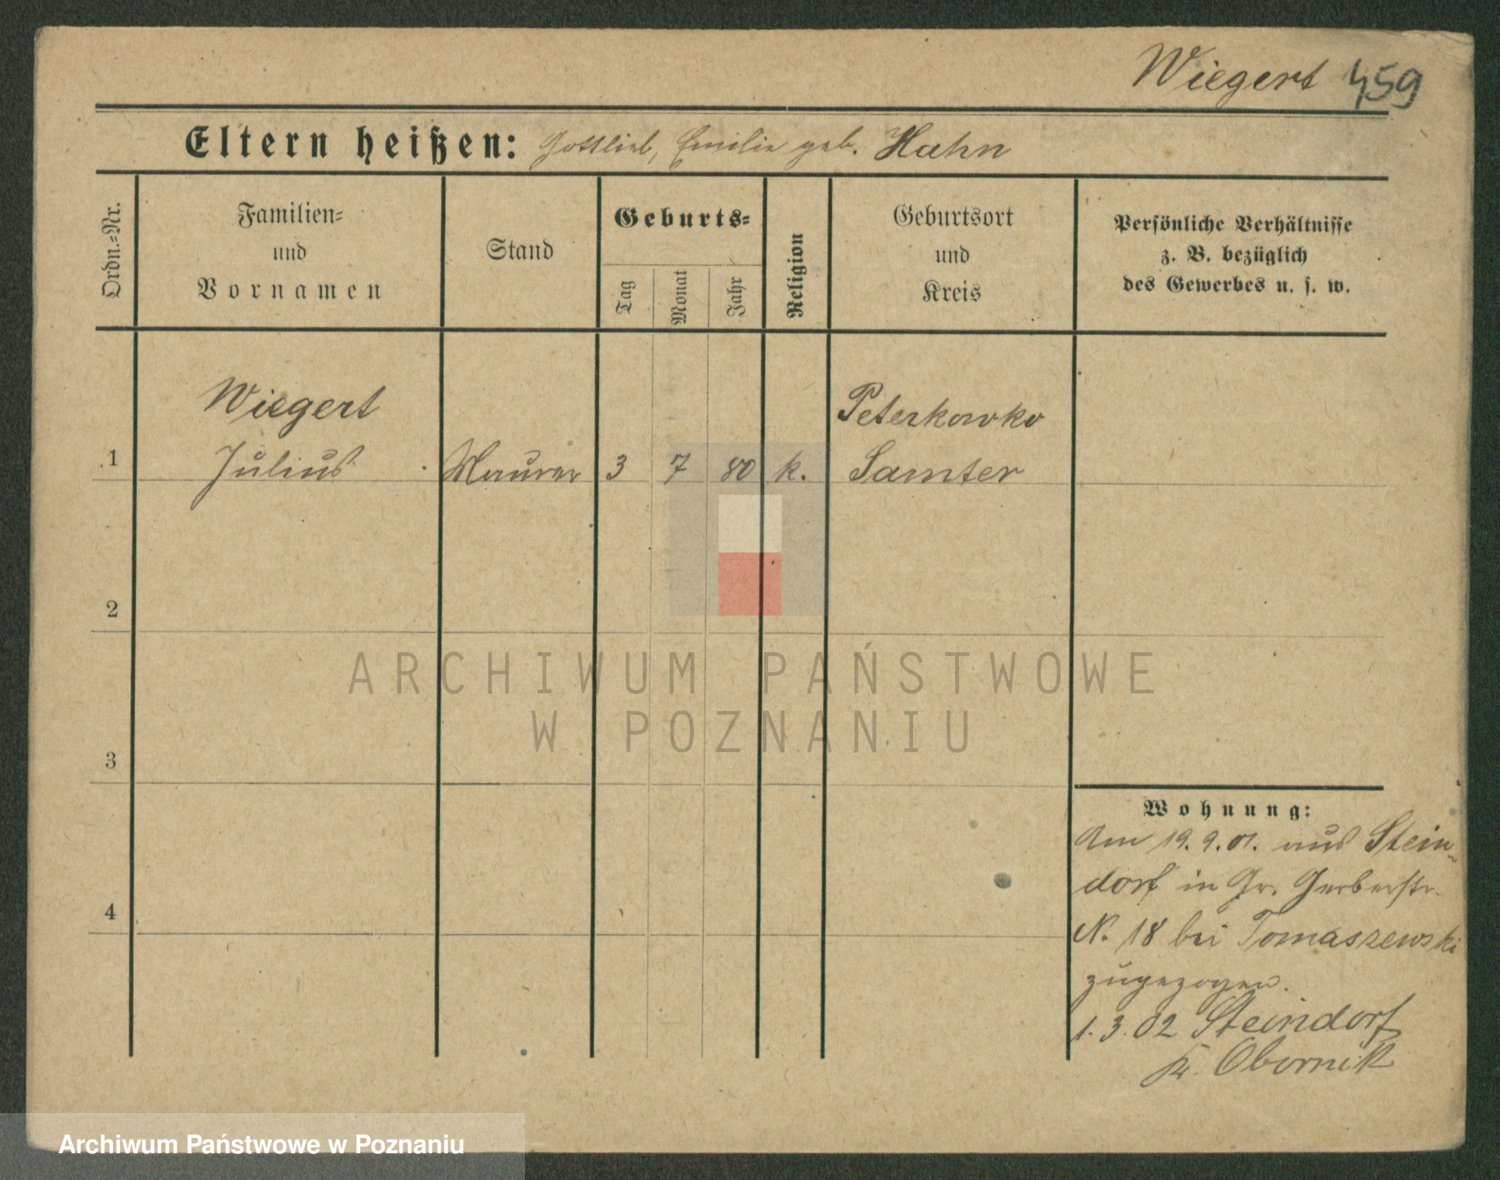 Wiegert 459
Eltern heißen: Gottlieb, Emilie geb. Hahn
Ordn.=Nr.
Familien=
und
Vornamen
Stand
Geburts=
Tag
Monat
Jahr
Religion
Geburtsort
und
Kreis
Persönliche Verhältnisse
z. B. bezüglich
des Gewerbes u. s. w.
Wiegert
Peterkowko
1 Julius Maurer 3 7 80 k. Samter
2
ARCHIWUM PAŃSTWOWE
W POZNANIU
3
4
Wohnung:
Am 19.9.01. aus Stein-
dorf in Gr. Gerberstr.
N. 18 bei Tomaszewski
zugezogen.
1.3.02 Steindorf
Kr. Obornik
Archiwum Państwowe w Poznaniu